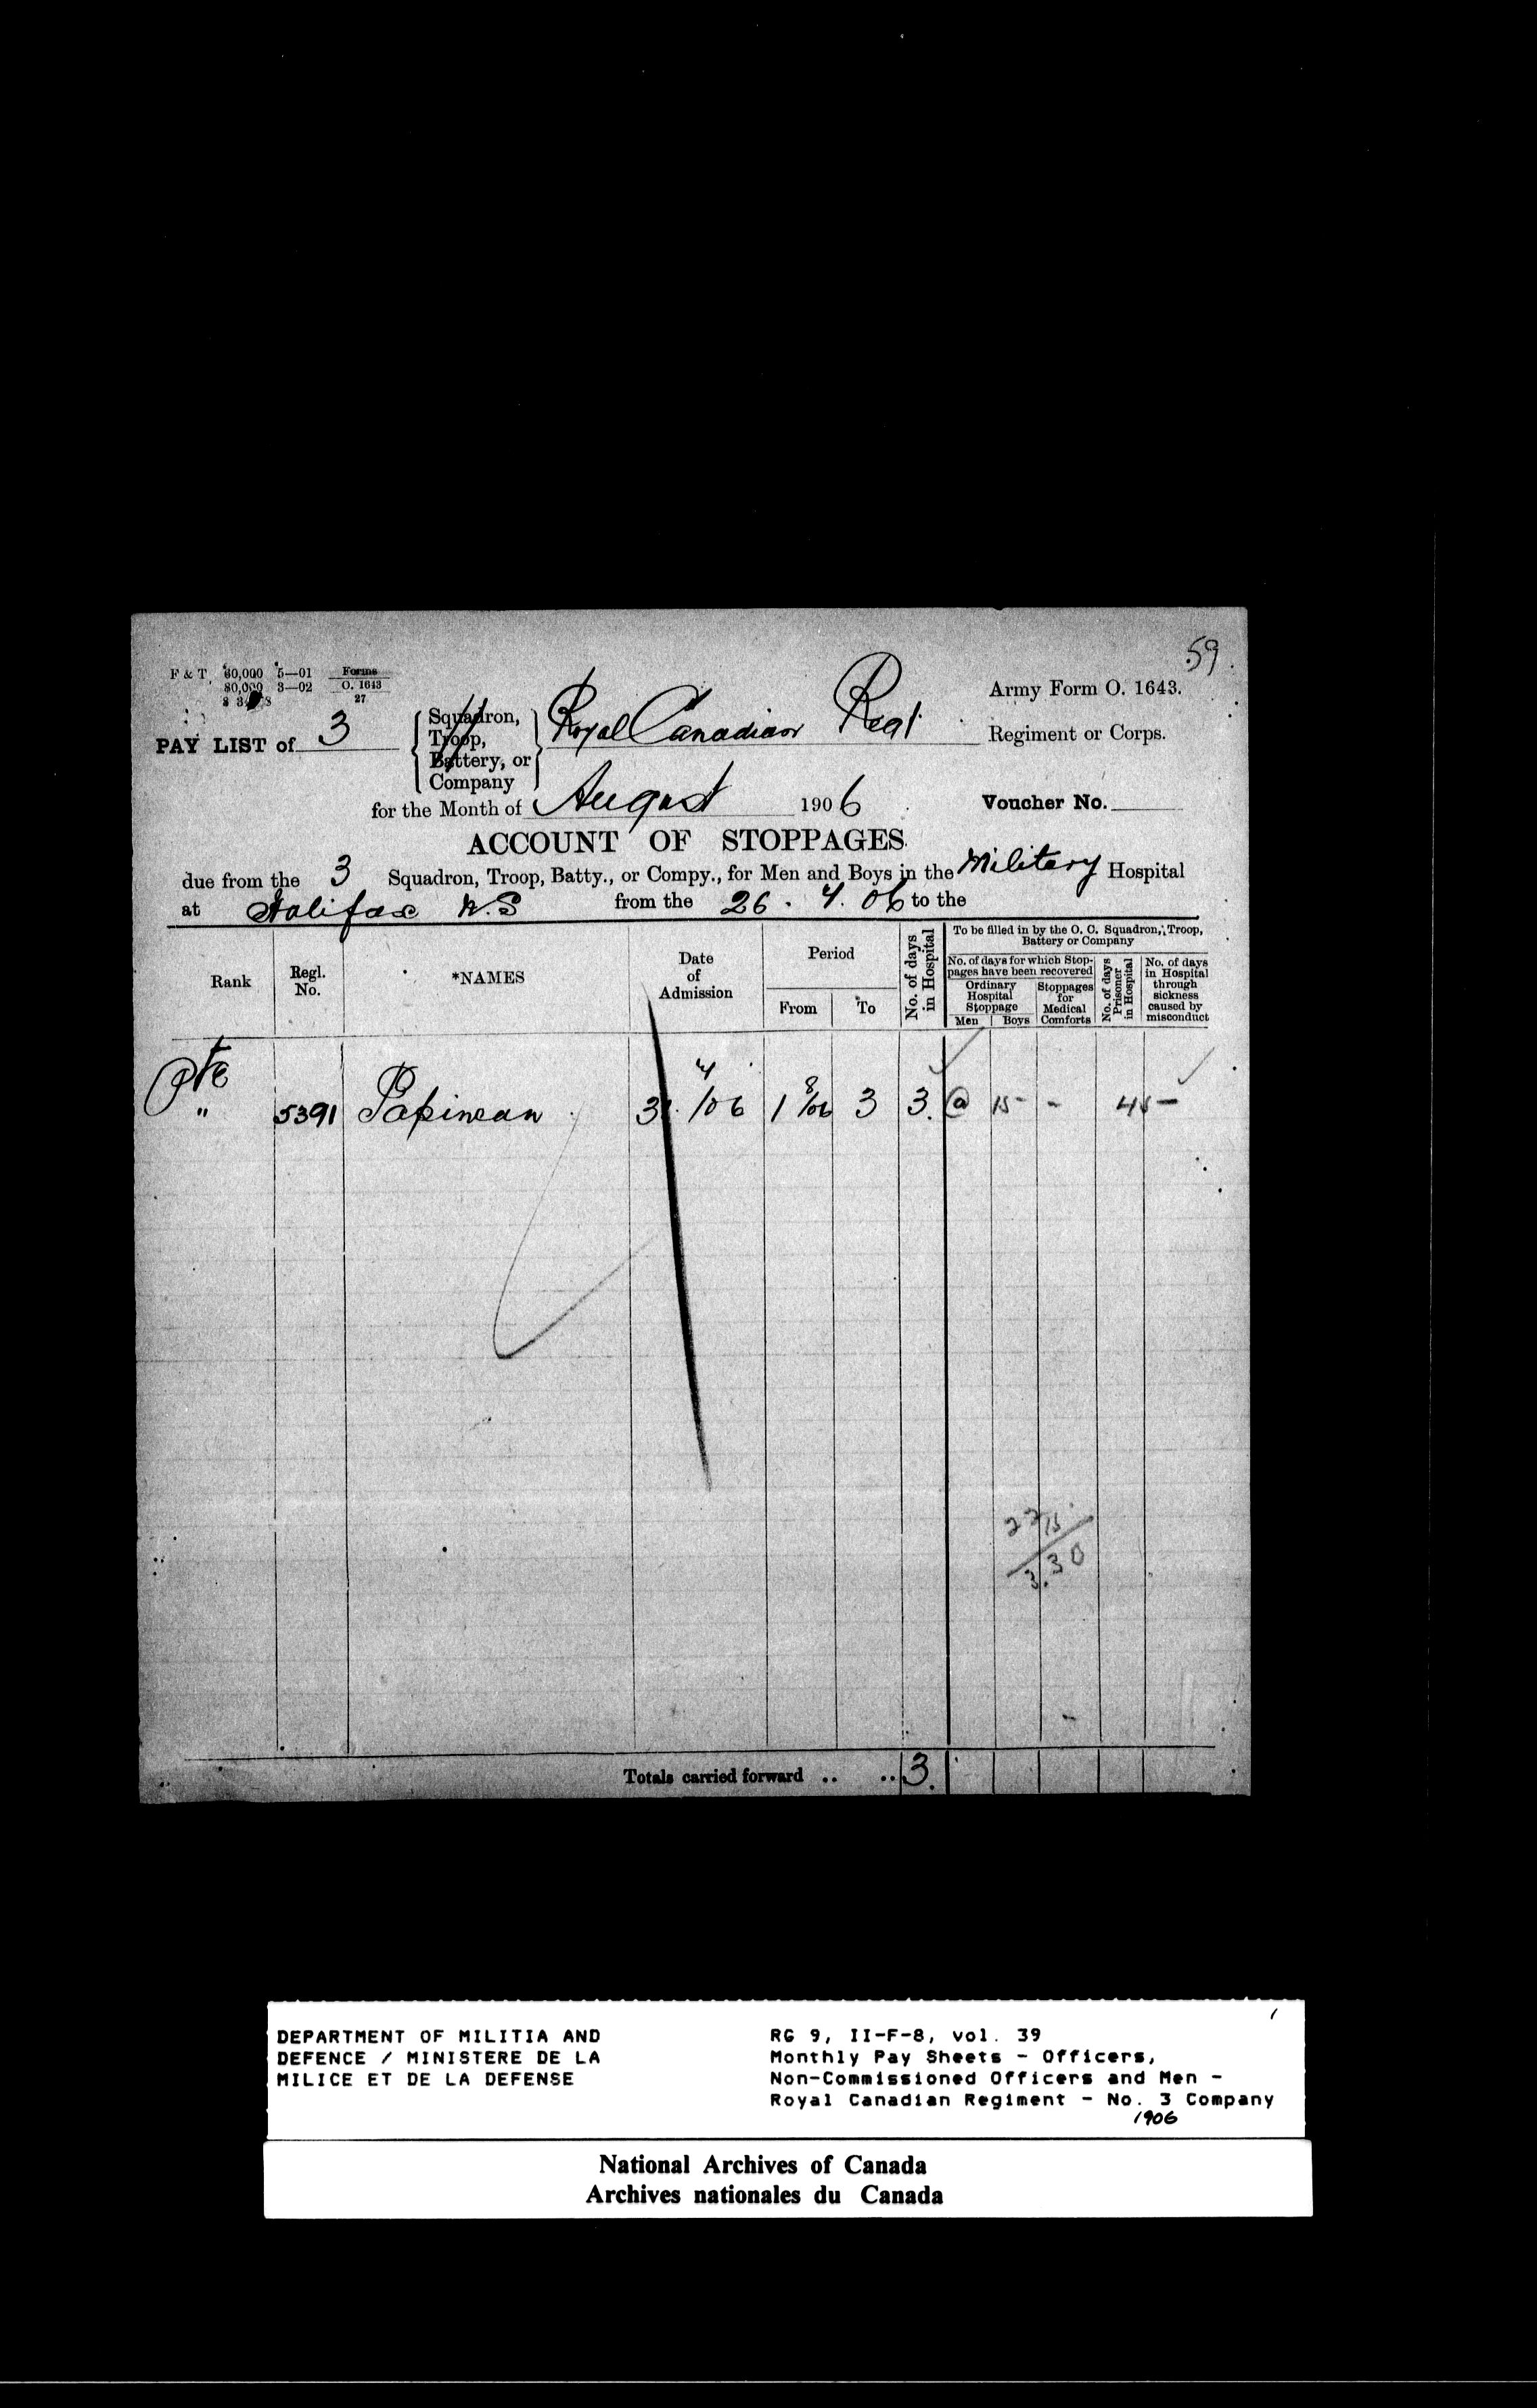 59.
F & T. 60,000 5—01 Forms
80,000 3—02 O. 1643
27
Army Form O. 1643.
PAY LIST of 3
Squadron,
Troop,
Battery, or
Company
Royal Canadian Regt.
Regiment or Corps.
for the Month of August 1906
Voucher No.
ACCOUNT OF STOPPAGES.
due from the 3 Squadron, Troop, Batty., or Compy., for Men and Boys in the Military Hospital
at Halifax N.S from the 26. 7. 06 to the
Rank
Regl. No.
*NAMES
Date of Admission
Period
From
To
No. of days in Hospital
To be filled in by the O. C. Squadron, Troop, Battery or Company
No. of days for which Stoppages have been recovered
Ordinary Hospital Stoppage
Men
Boys
Stoppages for Medical Comforts
No. of days Prisoner in Hospital
No. of days in Hospital through sickness caused by misconduct
Pte
" 5391 Papineau 7/06 1 8/06 3 3. @ 15 - - 45 -
22 15
3.30
Totals carried forward .. .. 3.
1
DEPARTMENT OF MILITIA AND
DEFENCE / MINISTERE DE LA
MILICE ET DE LA DEFENSE
RG 9, II-F-8, vol. 39
Monthly Pay Sheets - Officers,
Non-Commissioned Officers and Men -
Royal Canadian Regiment - No. 3 Company
1906
National Archives of Canada
Archives nationales du Canada